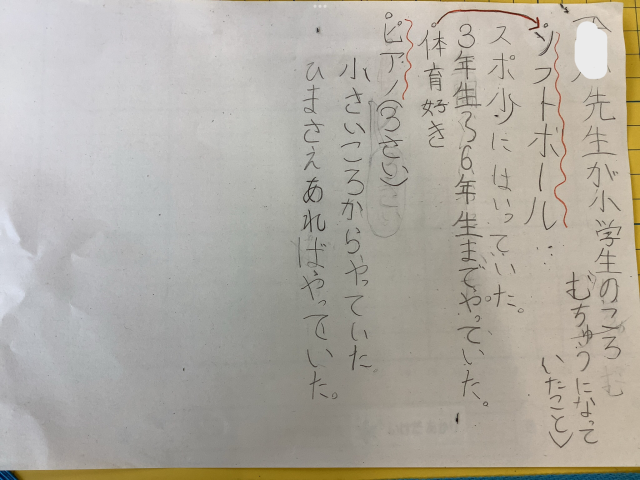 先生が小学生のころ
むちゅうになって
いたこと＞
・ソフトボール…
スポ少にはいっていた。
3年生〜6年生までやっていた。
・体育好き
・ピアノ(3さい)
小さいころからやっていた
ひまさえあればやっていた。